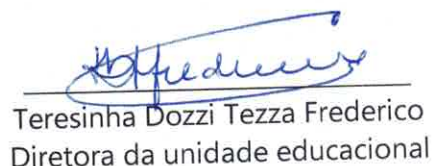 Teresinha Dozzi Tezza Frederico
Diretora da unidade educacional